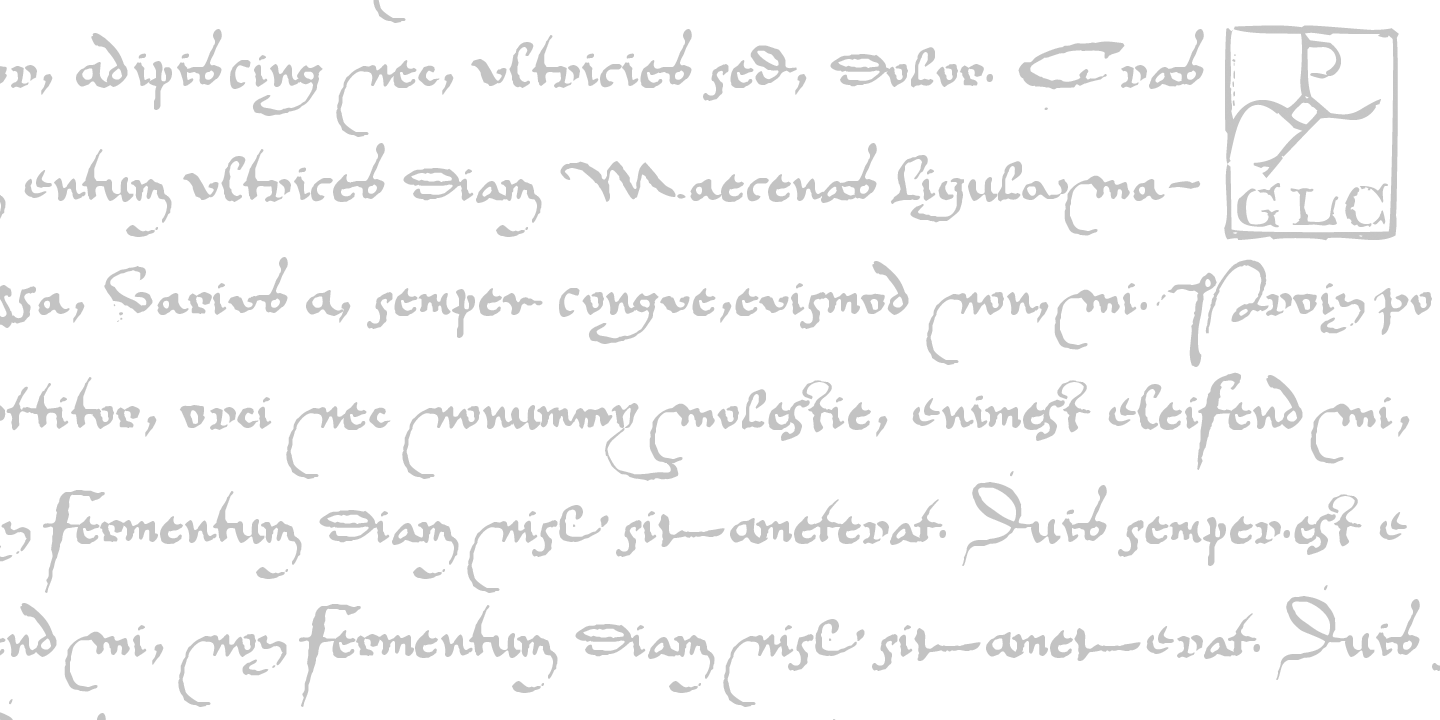 or, adipiscing nec, ultricies sed, dolor. Cras
P
GLC
entum ultrices diam Maecenas ligula ma-
ssa, Varius a, semper congue, euismod non, mi. Proin po
ttitor, orci nec nonummy molestie, enimest eleifend mi,
n fermentum diam nisl sit ameterat. Duis semper.est e
end mi, non fermentum diam nisl sit amet erat. Duis